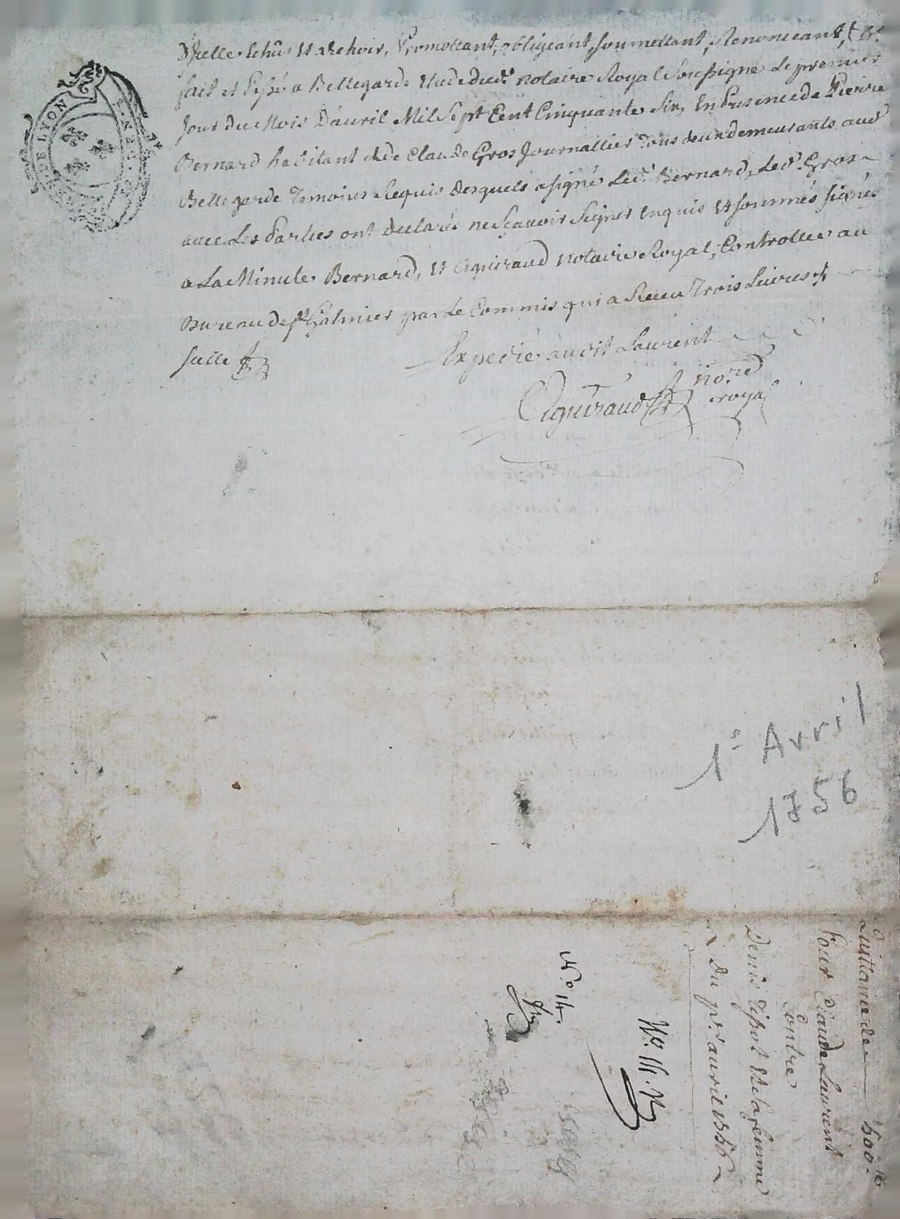 Promettant, obligeant, soumettant, Renonceant, &c.
fait et passé a Bellegarde Etude dud. notaire Royal soussigné Le premier
Jour du Mois D'avril Mil Sept Cent Cinquante Six, En Presence de Pierre
Bernard habitant de Claude Gros Journallier tous deux demeurants aud.
Bellegarde Temoins Requis Desquels a signé Led. Bernard, Led. Gros
avec Les Parties ont declaré ne sçavoir signer enquis et sommés signé
a La Minute Bernard, et Aguiraud notaire Royal, Controllée au
Bureau de St. Galmier par Le Commis qui a Receu Trois Livres
Expedié audit Laurent
Aguiraud nore.
royal
LYON
1er Avril
1756
Quittance de 500 lt
Pour Claude Laurent
Contre
Denis et sa femme
Du pr. avril 1756
No 14.